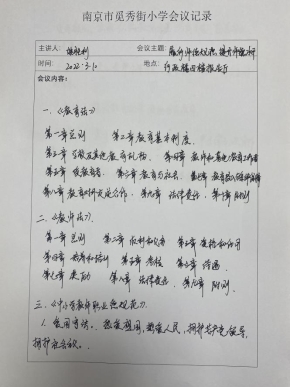 南京市觅秀街小学会议记录
主讲人:
会议主题: 履行师德规范, 提升师德水平
时间: 2022.3.10
地点: 行政楼四楼报告厅
会议内容:
一、《教育法》
第一章 总则 第二章 教育基本制度
第三章 学校及其他教育机构 第四章 教师和其他教育工作者
第五章 受教育者 第六章 教育与社会 第七章 教育投入与条件保障
第八章 教育对外交流与合作 第九章 法律责任 第十章 附则
二、《教师法》
第一章 总则 第二章 权利和义务 第三章 资格和任用
第四章 培养和培训 第五章 考核 第六章 待遇
第七章 奖励 第八章 法律责任 第九章 附则
三、《中小学教师职业道德规范》
1. 爱国守法。热爱祖国, 热爱人民, 拥护共产党领导,
拥护社会主义。